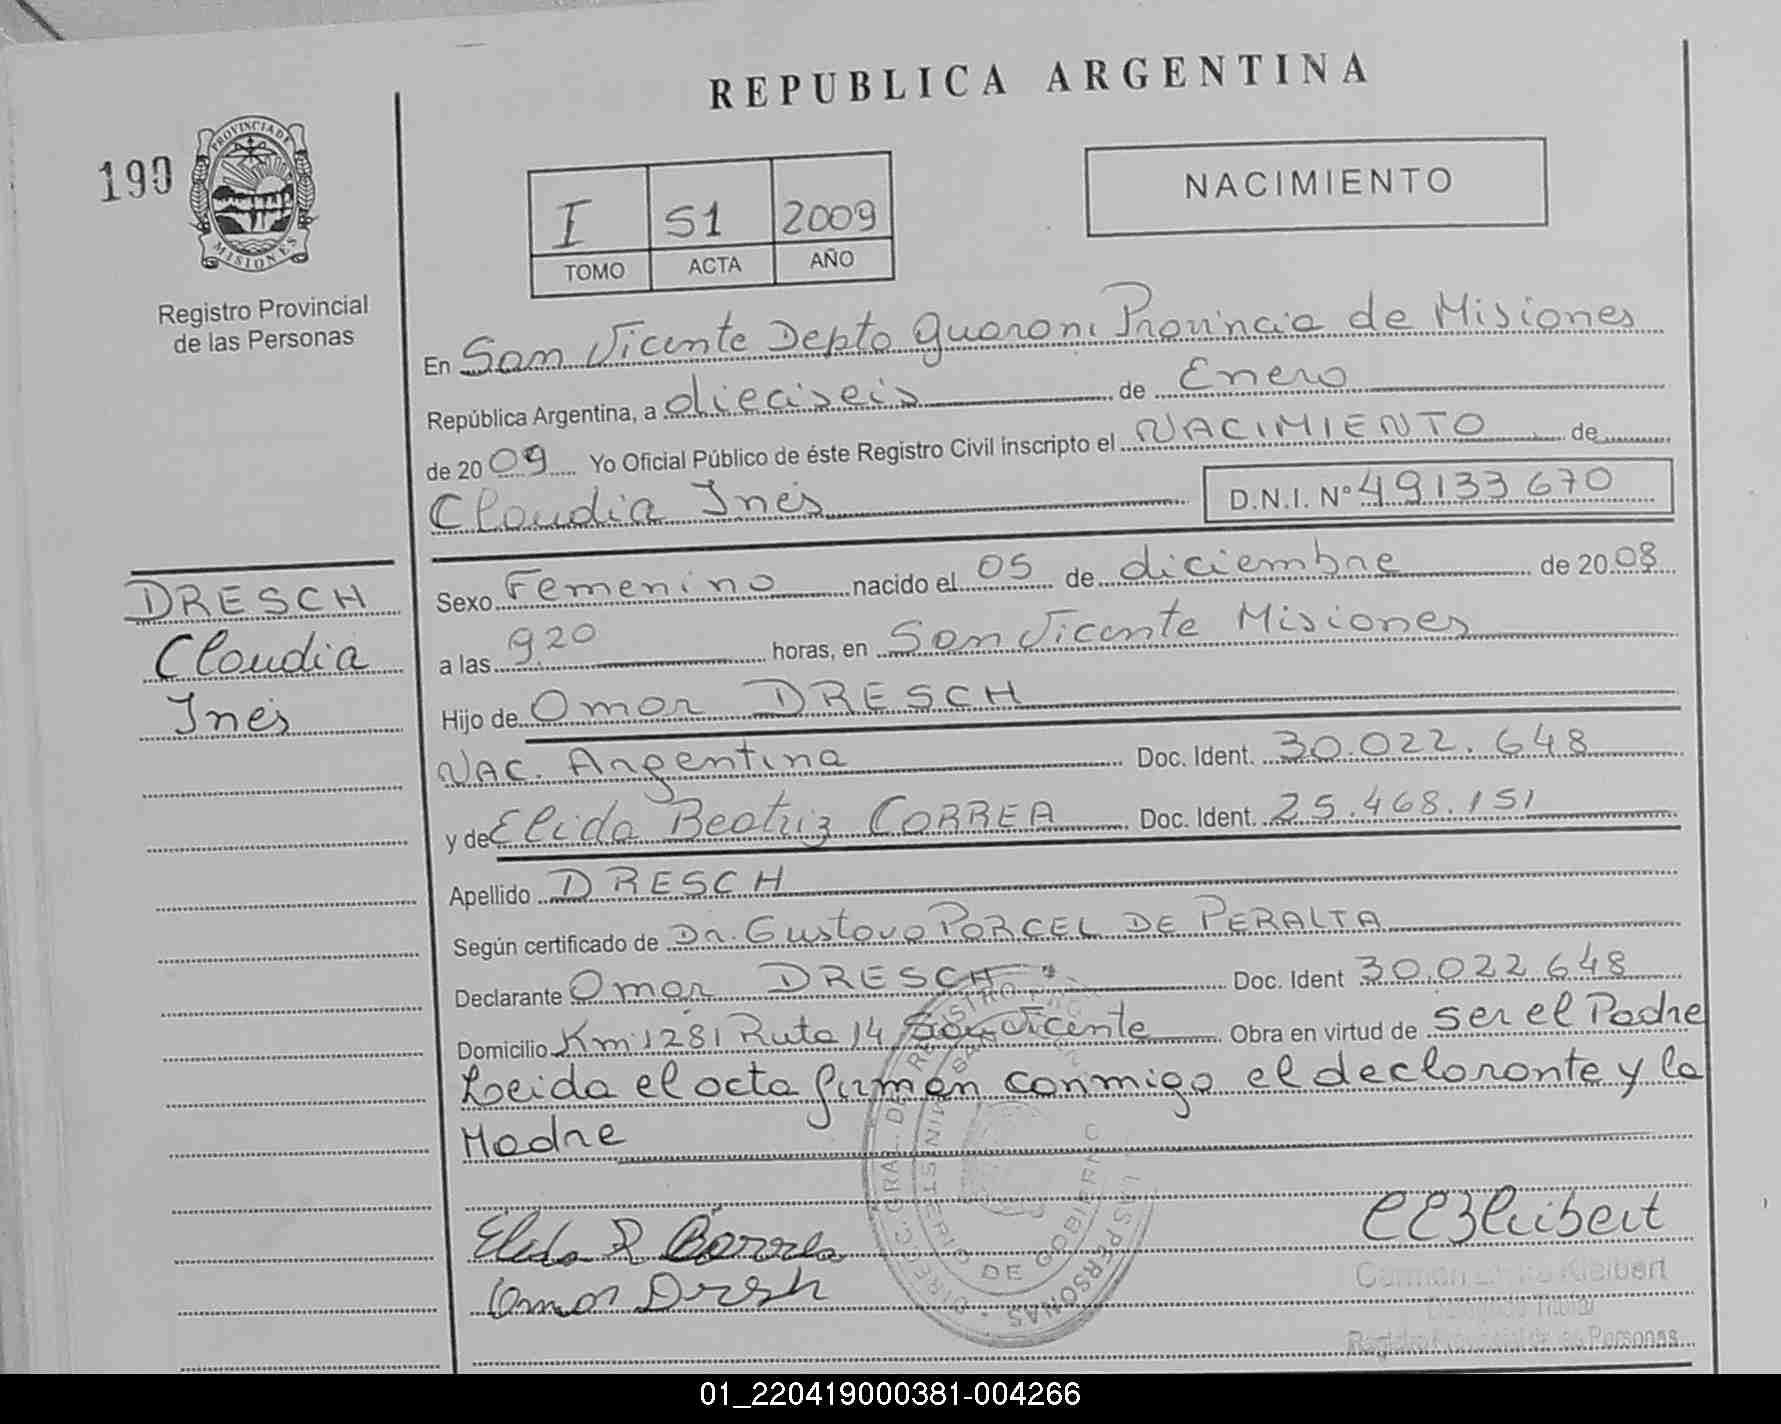 REPUBLICA ARGENTINA
190
PROVINCIA DE
MISIONES
Registro Provincial
de las Personas
I S1 2009
TOMO ACTA AÑO
NACIMIENTO
En San Vicente Depto Guaraní Provincia de Misiones
República Argentina, a dieciseis de Enero
de 2009 Yo Oficial Público de éste Registro Civil inscripto el NACIMIENTO de
Claudia Inés
D.N.I. Nº 49133670
DRESCH
Claudia
Inés
Sexo Femenino nacido el 05 de diciembre de 2008
a las 9,20 horas, en San Vicente Misiones
Hijo de Omar DRESCH
NAC. Argentina Doc. Ident. 30.022.648
y de Elida Beatriz CORREA Doc. Ident. 25.468.151
Apellido DRESCH
Según certificado de Dr. Gustavo PORCEL DE PERALTA
Declarante Omar DRESCH Doc. Ident 30.022.648
Domicilio Km 1281 Ruta 14 San Vicente Obra en virtud de ser el Padre
Leida el acta firman conmigo el declarante y la
Madre
Elida B Correa
Omar Dresh
DIREC. GRAL. DE REGISTRO PERSONAS
MINISTERIO DE GOBIERNO
Carmen Kleibert
Delegado Titular
Registro Provincial de las Personas
01_220419000381-004266